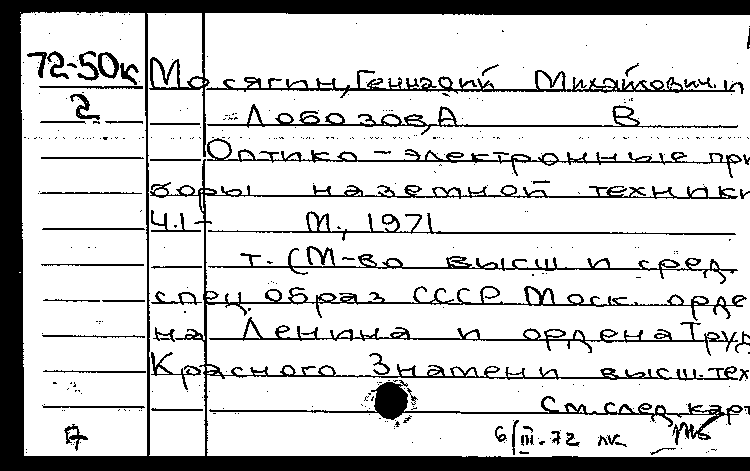 72-50к Мосягин, Геннадий Михайлович и
2 Лобозов, А В
Оптико-электронные при
боры наземной техники
Ч.1- М., 1971
т. (М-во высш и сред
спец образ СССР Моск. орде
на Ленина и ордена Труд
Красного Знамени высш. тех
См. след. карт
6/III-72 лк